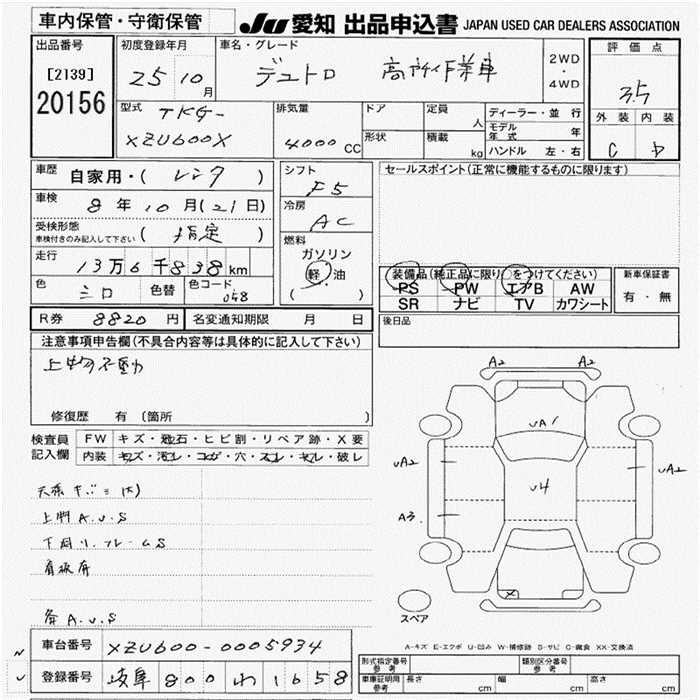 車内保管・守衛保管
JU 愛知 出品申込書 JAPAN USED CAR DEALERS ASSOCIATION
出品番号
[2139]
20156
初度登録年月
25 10月
車名・グレード
デュトロ 高所作業車
2WD
・
4WD
評価点
3.5
外装 内装
C D
型式 TKG-
XZU600X
排気量
4000 CC
ドア
形状
定員 人
積載 kg
ディーラー・並行
モデル年式 年
ハンドル 左・右
車歴
自家用・( レンタ )
車検
8年10月(21日)
受検形態
車検付きのみ記入して下さい ( 指定 )
走行
13万6千838km
色 シロ 色替 色コード 058
シフト
F5
冷房
AC
燃料
ガソリン
軽・油
( )
セールスポイント(正常に機能するものに限ります)
装備品(純正品に限り○をつけてください)
PS PW エアB AW
SR ナビ TV カワシート
新車保証書
有・無
R券 8820円 名変通知期限 月 日
後日品
注意事項申告欄(不具合内容等は具体的に記入して下さい)
上物不動
修復歴 有 (箇所 )
検査員
記入欄
FW キズ・飛石・ヒビ割・リペア跡・X要
内装 キズ・汚レ・コゲ・穴・スレ・キレ・破レ
上物 A.U.S
下回リ.フレームS
看板有
各 A.U.S
A2 A2
UA1
UA2
U4
UA2
A3
X
スペア
A-キズ E-エクボ U-凹み W-補修跡 S-サビ C-腐食 XX-交換済
車台番号 XZU600-0005934
登録番号 岐阜 800 わ 1658
型式指定番号
参考
類別区分番号
参考
車庫証明用
参考
長さ cm 幅 cm 高さ cm